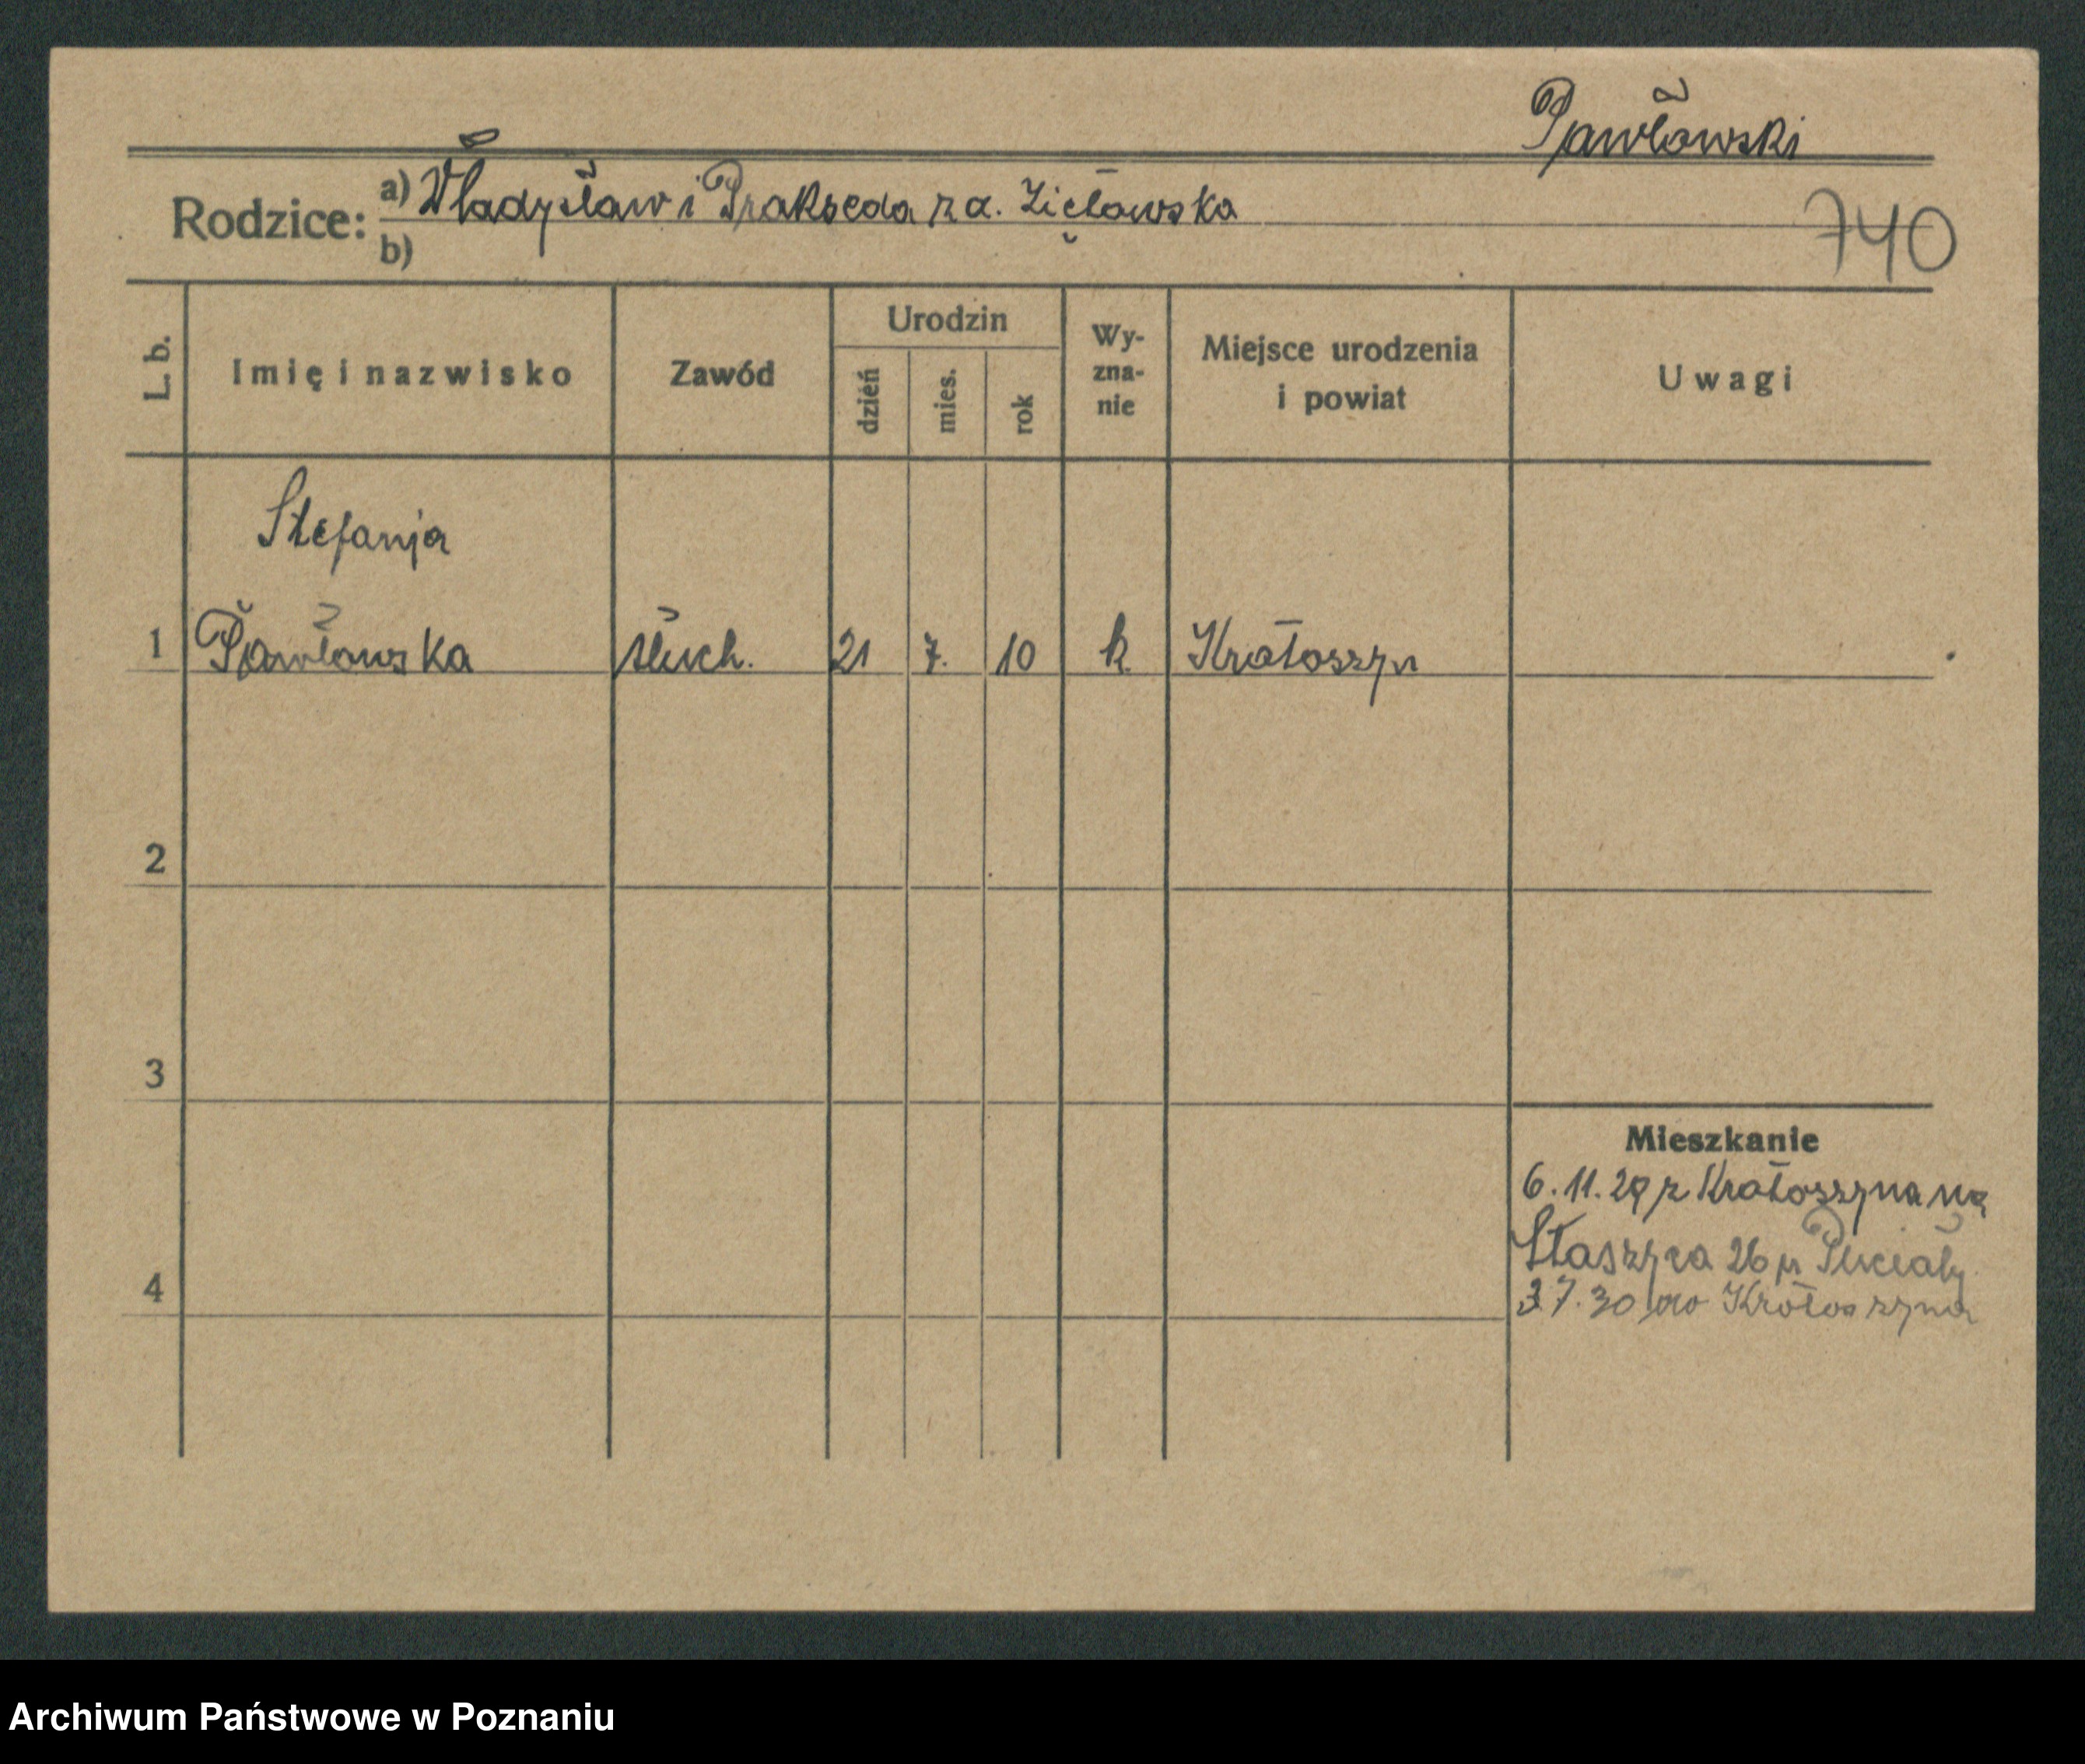 Pawłowski
Rodzice: a) Władysław i Prakseda z d. Ziętowska
b)
740
L. b.
Imię i nazwisko
Zawód
Urodzin
dzień
mies.
rok
Wy-
zna-
nie
Miejsce urodzenia
i powiat
Uwagi
Stefanja
1 Pawłowska słuch. 21 7. 10 k. Krotoszyn
2
3
4
Mieszkanie
6.11.29 z Krotoszyna na
Staszyca 26 p
3 7. 30 do Krotoszyna
Archiwum Państwowe w Poznaniu